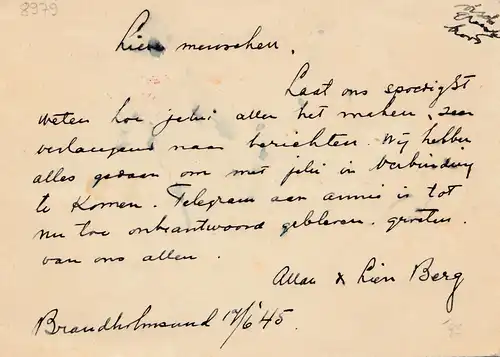 8979
Lieve menschen,
Laat ons spoedigst
weten hoe jelui allen het maken, zeer
verlangend naar berichten. Wij hebben
alles gedaan om met jelui in verbinding
te komen. Telegram aan annie is tot
nu toe onbeantwoord gebleven. groeten
van ons allen.
Allan & Lien Berg
Brandholmsund 17/6 '45.